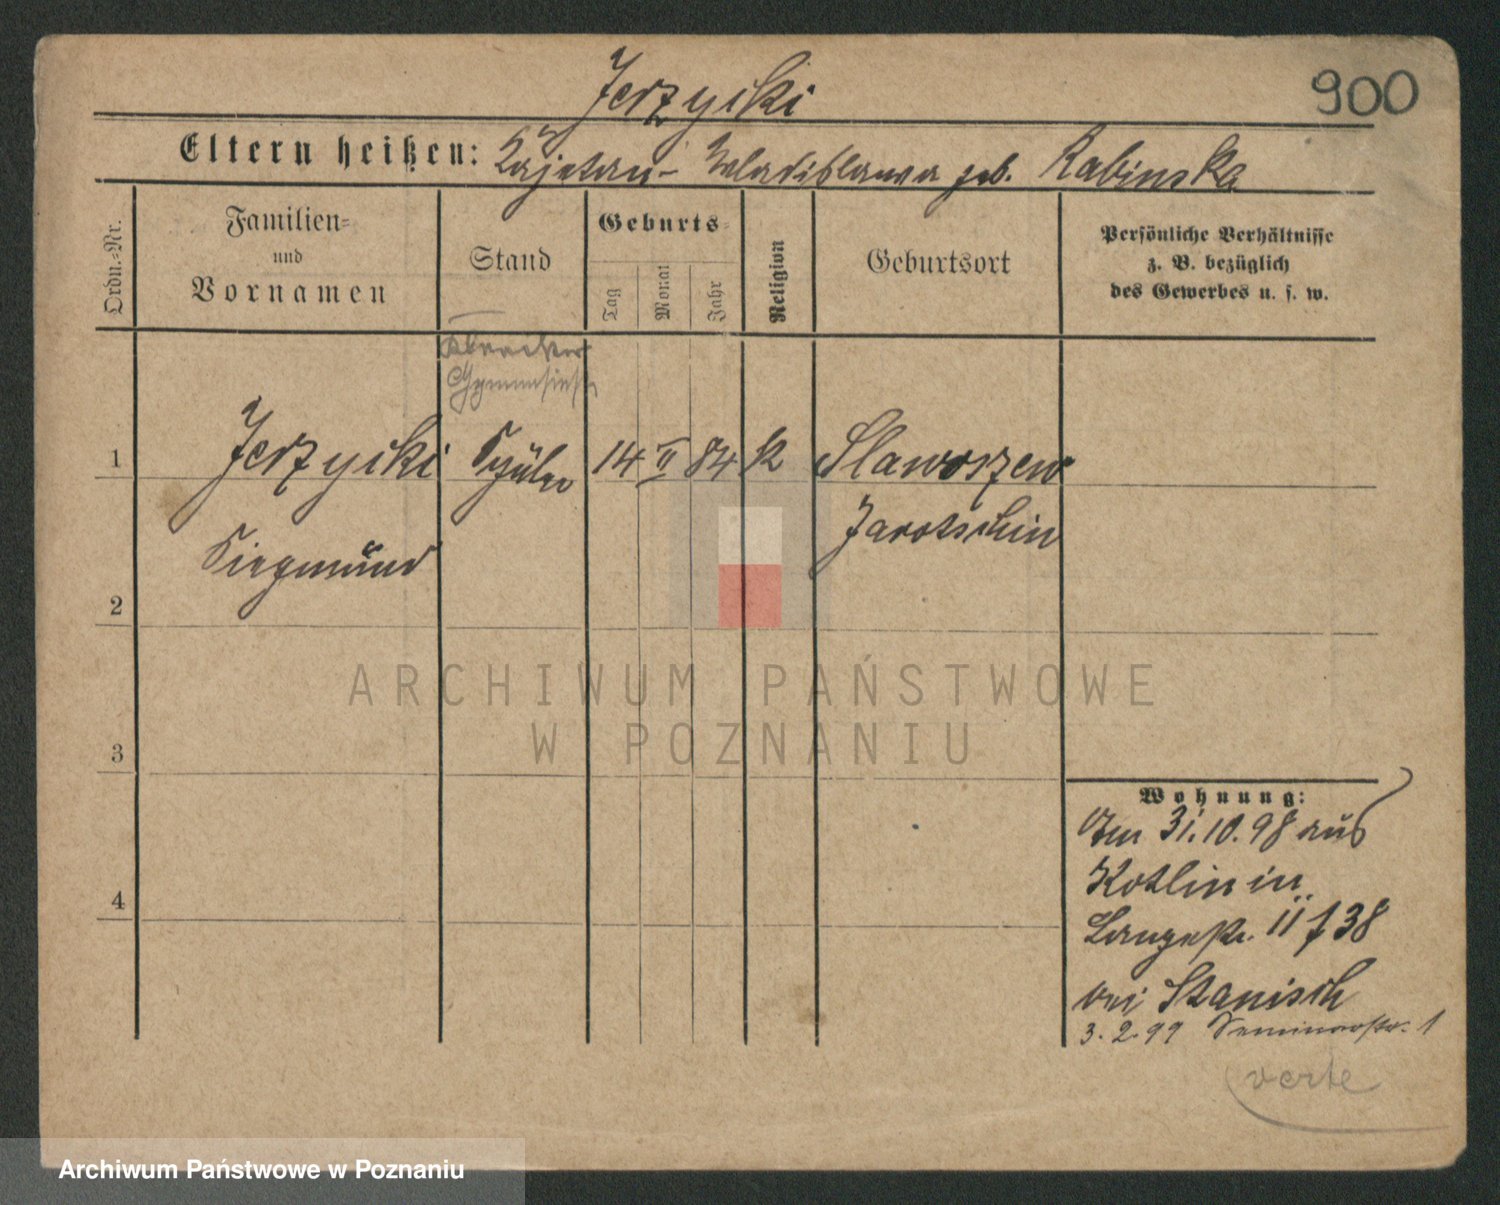 Jerzycki
900
Eltern heißen: Kajetan - Wladislawa geb. Rabinska
Ordn.-Nr.
Familien-
und
Vornamen
Stand
Geburts-
Tag
Monat
Jahr
Religion
Geburtsort
Persönliche Verhältnisse
z. B. bezüglich
des Gewerbes u. s. w.
1 Jerzycki Schüler 14 II 84 K Slawoszew
Jarotschin
Siegmund
2
3
4
ARCHIWUM PAŃSTWOWE
W POZNANIU
Wohnung:
Am 31.10.98 aus
Kotlin in
Langestr. 11 f 38
bei Stanisch
3.2.99 Seminarstr. 1
verte
Archiwum Państwowe w Poznaniu